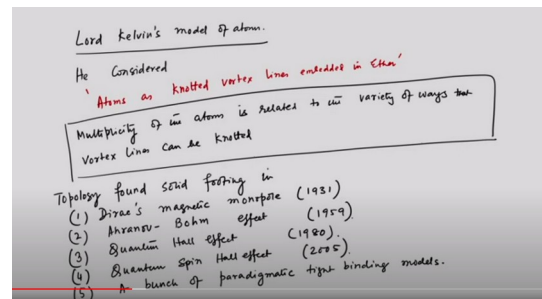 Lord Kelvin's model of atom.
He Considered
'Atoms as knotted vortex lines embedded in Ether'
Multiplicity of the atom is related to the variety of ways that
vortex lines can be knotted
Topology found solid footing in
(1) Dirac's magnetic monopole (1931)
(2) Ahranov-Bohm effect (1959).
(3) Quantum Hall effect (1980).
(4) Quantum Spin Hall effect (2005).
(5) A bunch of paradigmatic tight binding models.